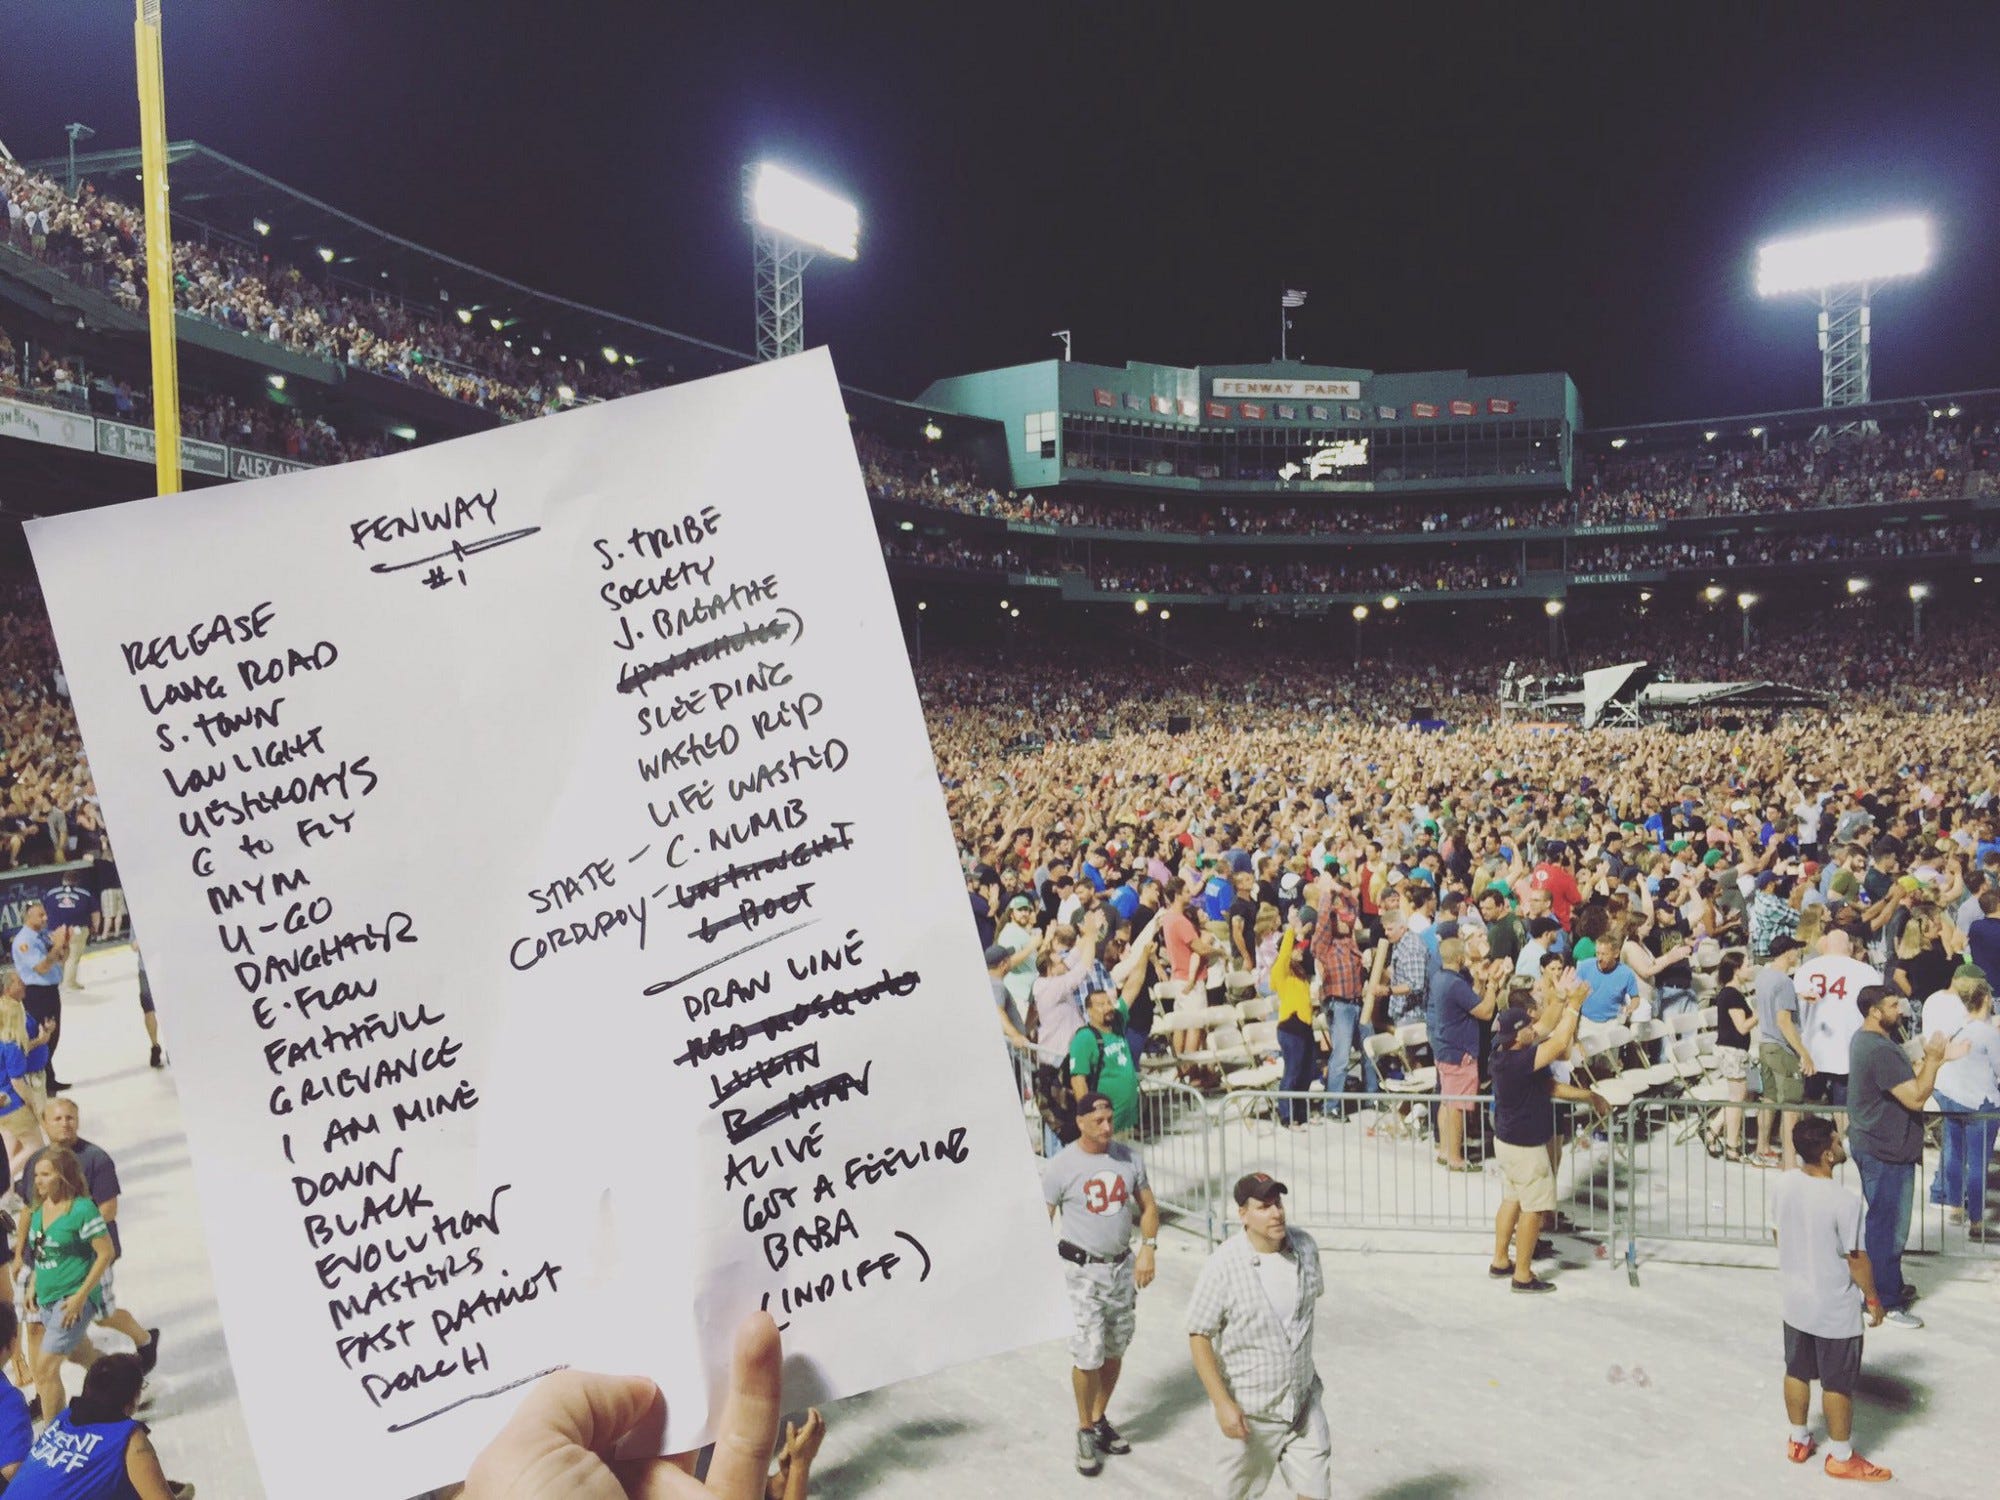 FENWAY
#1
RELEASE
LONG ROAD
S. TOWN
LOW LIGHT
YESTERDAYS
G to FLY
MYM
U-GO
DAUGHTER
E. FLOW
FAITHFULL
GRIEVANCE
I AM MINE
DOWN
BLACK
EVOLUTION
MASTERS
FAST PATRIOT
PORCH
S. TRIBE
SOCIETY
J. BREATHE
(PARACHUTES)
SLEEPING
WASTED REP
LIFE WASTED
STATE - C. NUMB
CORDUROY - UNTHOUGHT
L. BOLT
DRAW LINE
RED MOSQUITO
LUKIN
B. MAN
ALIVE
GOT A FEELING
BABA
(INDIFF)
FENWAY PARK
STATE STREET PAVILION
EMC LEVEL
EMC LEVEL
ALEX AN
34
34
EVENT
STAFF